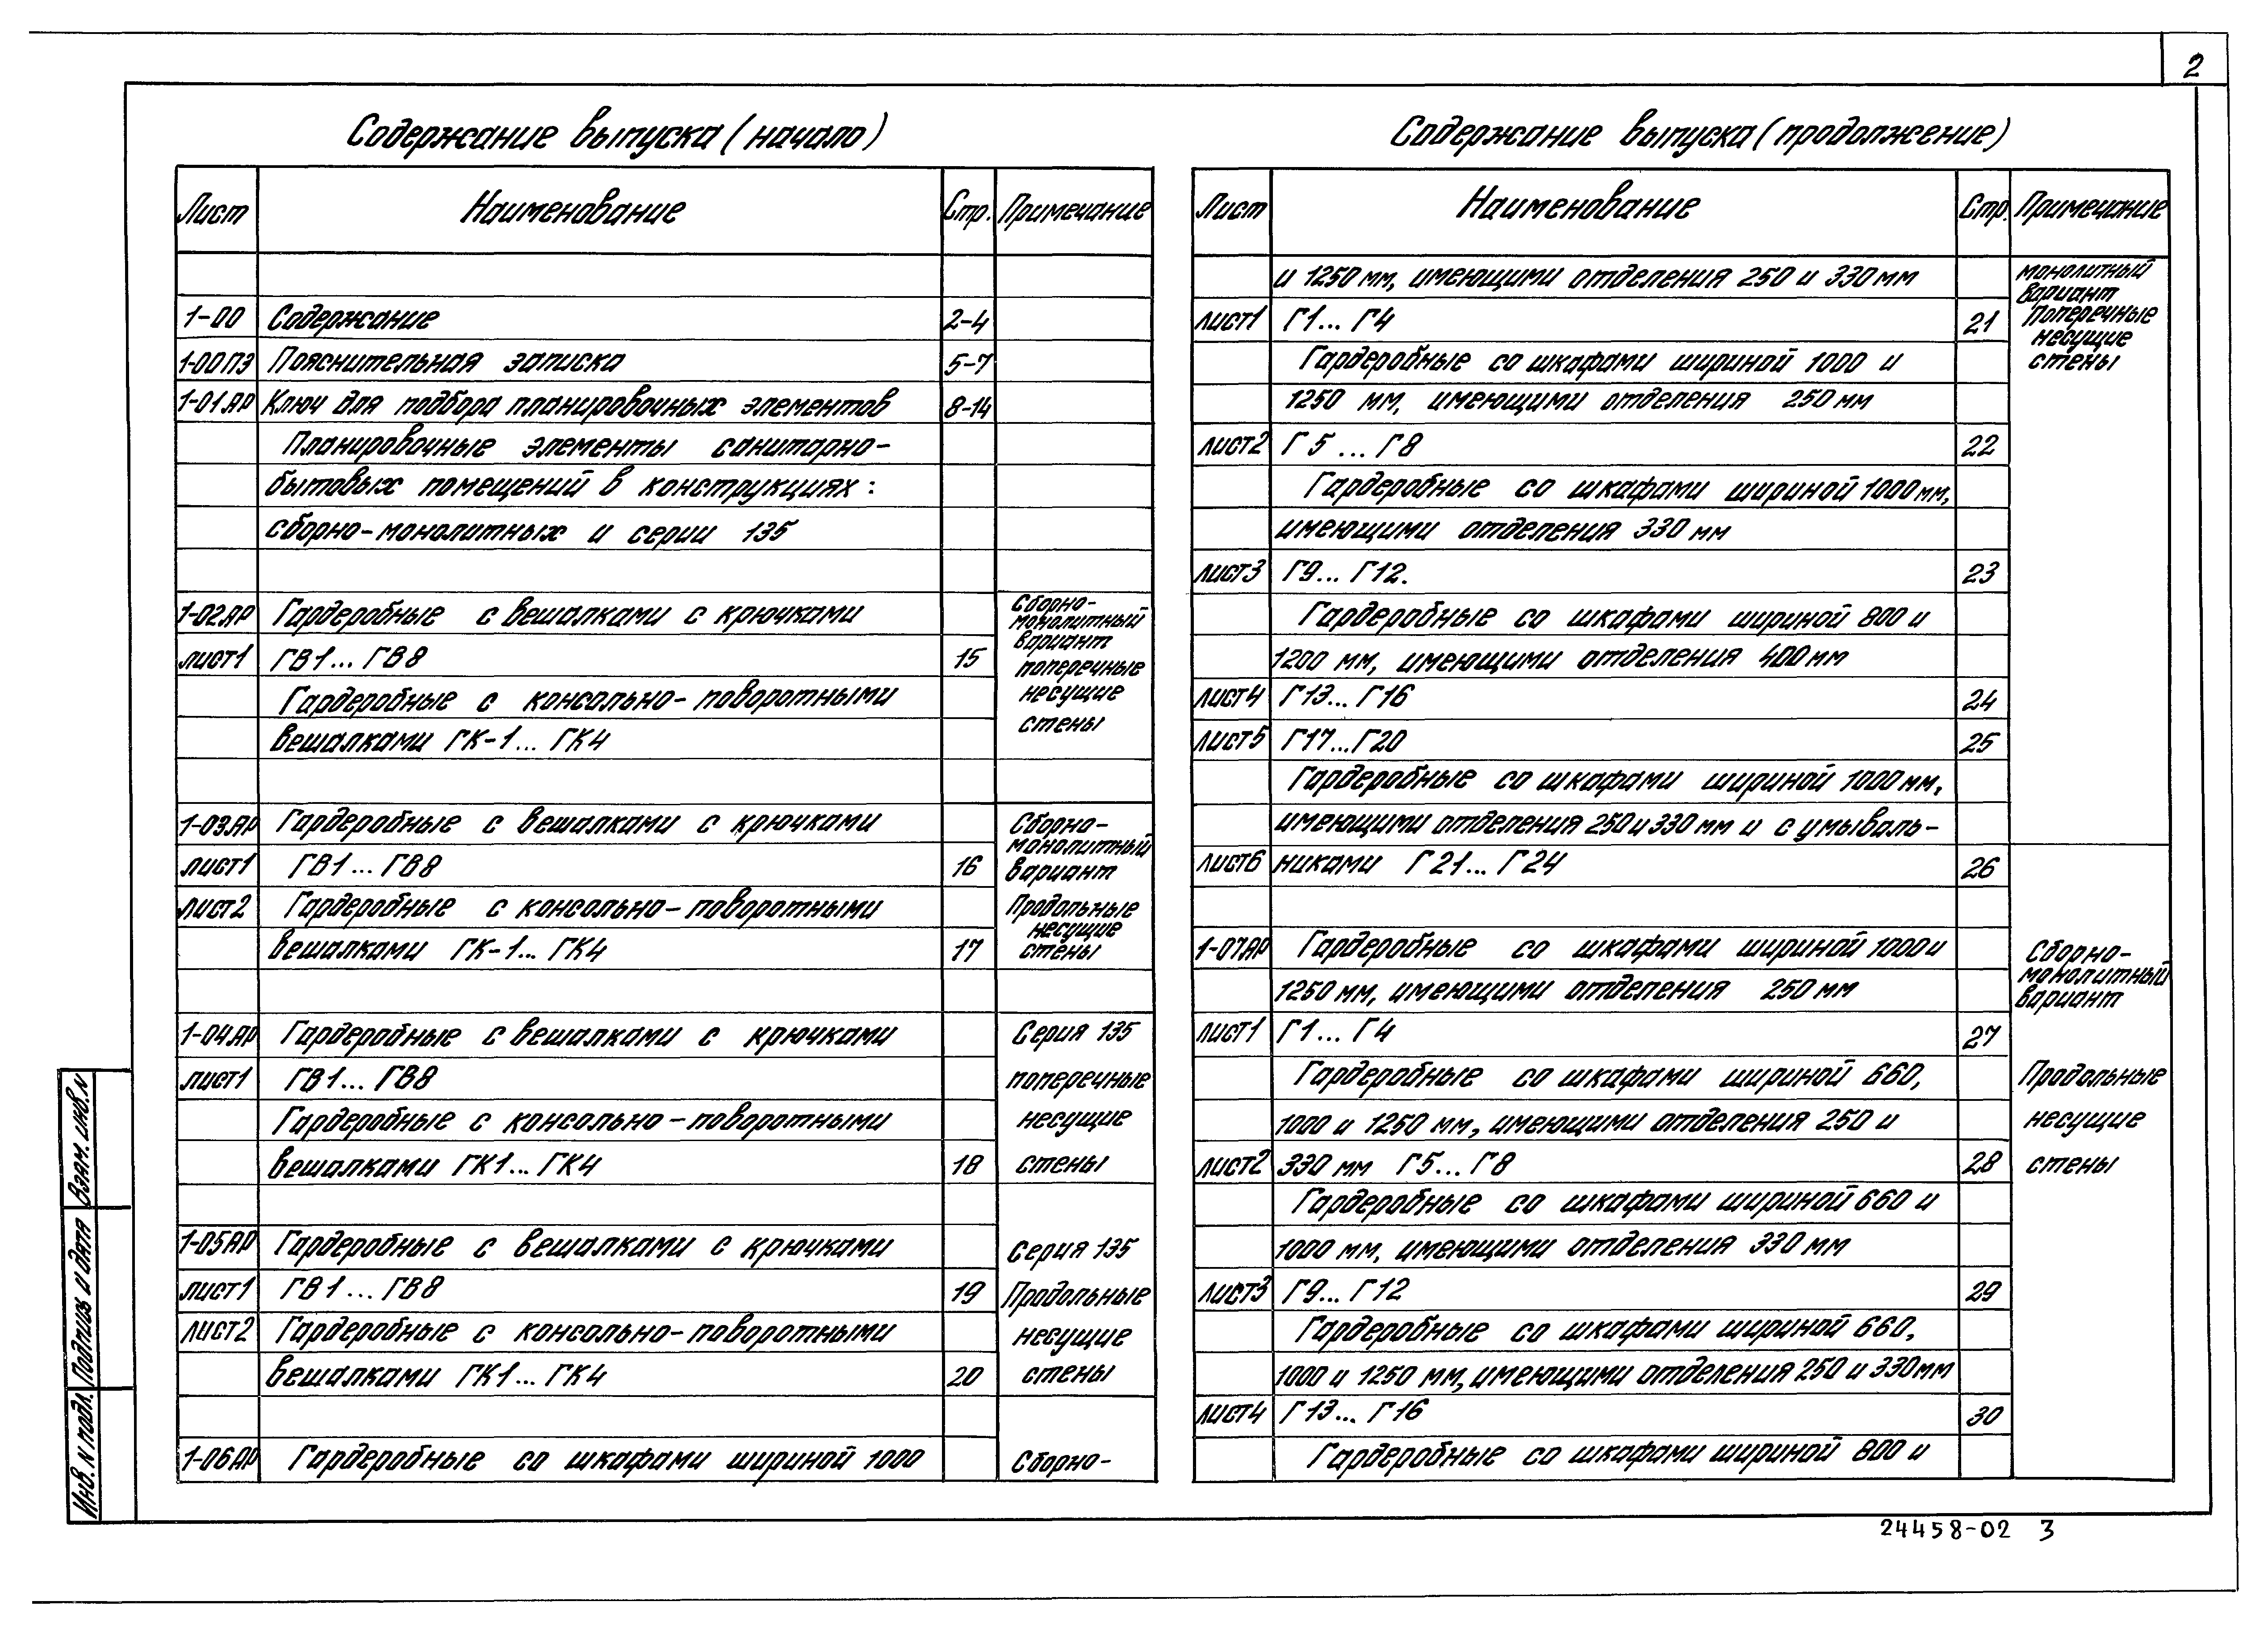 2
Содержание выпуска (начало)
Лист Наименование Стр. Примечание
1-00 Содержание 2-4
1-00ПЗ Пояснительная записка 5-7
1-01АР Ключ для подбора планировочных элементов 8-14
Планировочные элементы санитарно-
бытовых помещений в конструкциях:
сборно-монолитных и серии 135
1-02АР Гардеробные с вешалками с крючками Сборно-
монолитный
вариант
лист1 ГВ1... ГВ8 15 поперечные
Гардеробные с консольно-поворотными несущие
вешалками ГК-1... ГК4 стены
1-03АР Гардеробные с вешалками с крючками Сборно-
монолитный
лист1 ГВ1... ГВ8 16 вариант
лист2 Гардеробные с консольно-поворотными Продольные
несущие
вешалками ГК-1... ГК4 17 стены
1-04АР Гардеробные с вешалками с крючками Серия 135
лист1 ГВ1... ГВ8 поперечные
Гардеробные с консольно-поворотными несущие
вешалками ГК1... ГК4 18 стены
1-05АР Гардеробные с вешалками с крючками Серия 135
лист1 ГВ1...ГВ8 19 Продольные
лист2 Гардеробные с консольно-поворотными несущие
вешалками ГК1... ГК4 20 стены
1-06АР Гардеробные со шкафами шириной 1000 Сборно-
Содержание выпуска (продолжение)
Лист Наименование Стр. Примечание
и 1250 мм, имеющими отделения 250 и 330 мм монолитный
вариант
лист1 Г1... Г4 21 Поперечные
несущие
Гардеробные со шкафами шириной 1000 и стены
1250 мм, имеющими отделения 250 мм
лист2 Г5 ... Г8 22
Гардеробные со шкафами шириной 1000 мм,
имеющими отделения 330 мм
лист3 Г9... Г12. 23
Гардеробные со шкафами шириной 800 и
1200 мм, имеющими отделения 400 мм
лист4 Г13... Г16 24
лист5 Г17...Г20 25
Гардеробные со шкафами шириной 1000 мм,
имеющими отделения 250 и 330 мм и с умываль-
лист6 никами Г21... Г24 26
1-07АР Гардеробные со шкафами шириной 1000 и Сборно-
монолитный
1250 мм, имеющими отделения 250 мм вариант
лист1 Г1... Г4 27
Гардеробные со шкафами шириной 660, Продольные
1000 и 1250 мм, имеющими отделения 250 и несущие
лист2 330 мм Г5... Г8 28 стены
Гардеробные со шкафами шириной 660 и
1000 мм, имеющими отделения 330 мм
лист3 Г9... Г12 29
Гардеробные со шкафами шириной 660,
1000 и 1250 мм, имеющими отделения 250 и 330 мм
лист4 Г13... Г16 30
Гардеробные со шкафами шириной 800 и
Взам. инв. N
Подпись и дата
Инв. N подл.
24458-02 3